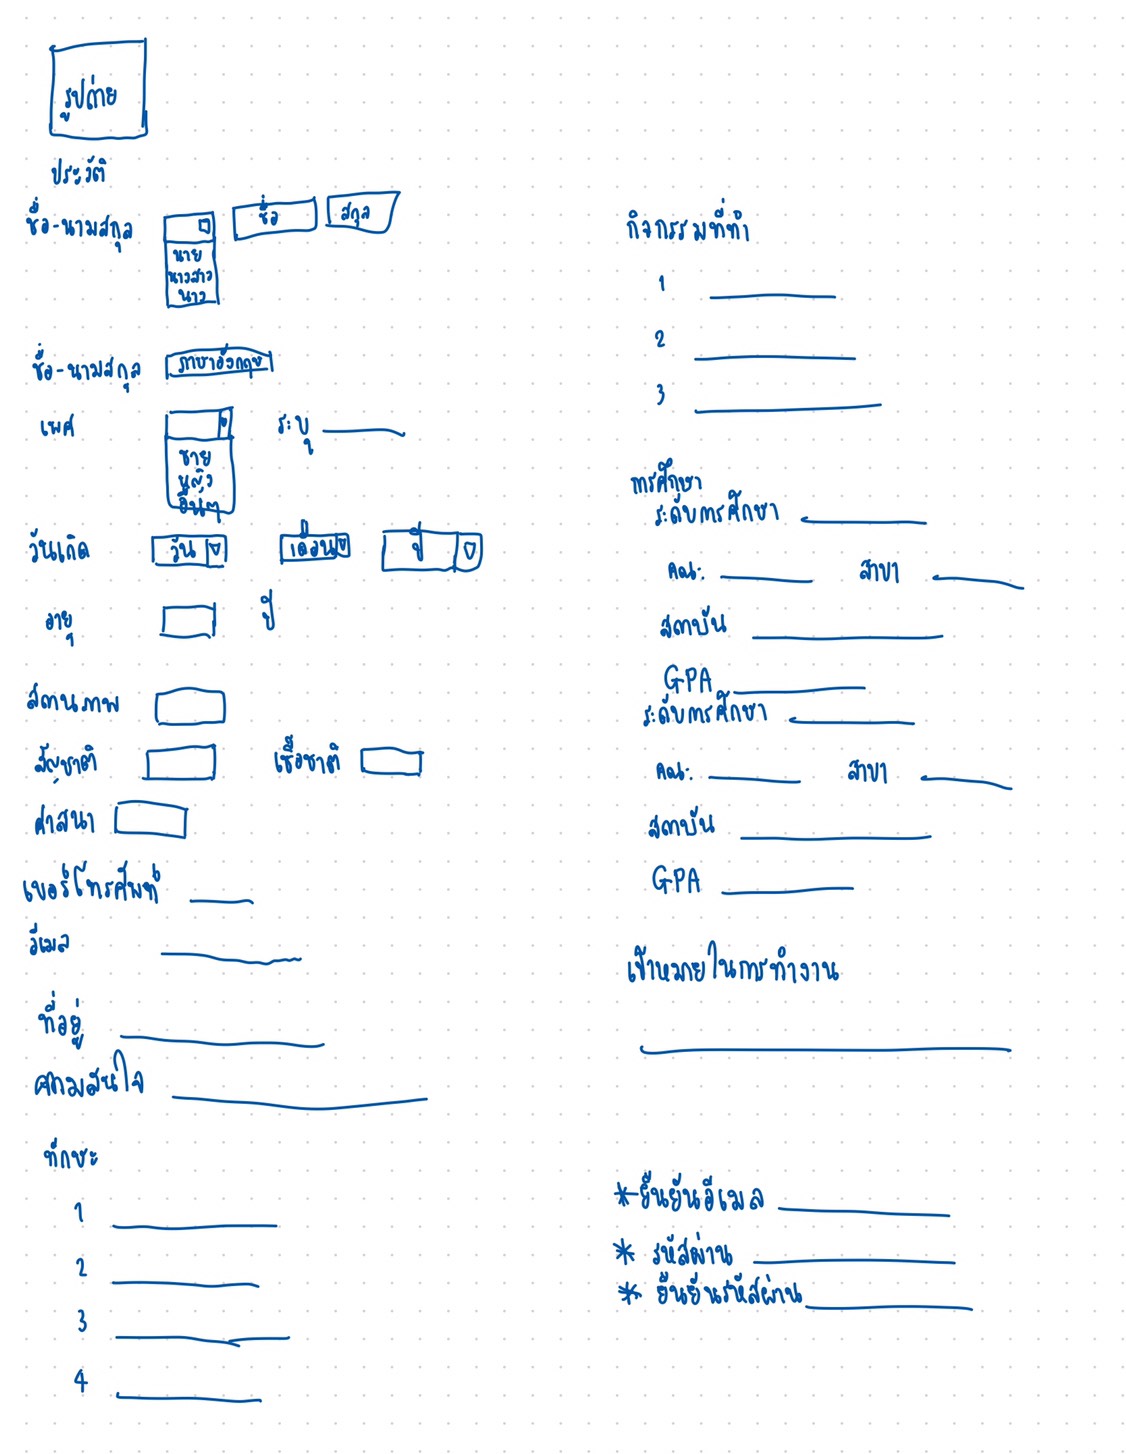 รูปถ่าย
ประวัติ
ชื่อ-นามสกุล ชื่อ สกุล
นาย
นางสาว
นาง
ชื่อ-นามสกุล ภาษาอังกฤษ
เพศ ระบุ
ชาย
หญิง
อื่นๆ
วันเกิด วัน เดือน ปี
อายุ ปี
สถานภาพ
สัญชาติ เชื้อชาติ
ศาสนา
เบอร์โทรศัพท์
อีเมล
ที่อยู่
ความสนใจ
ทักษะ
1
2
3
4
กิจกรรมที่ทำ
1
2
3
การศึกษา
ระดับการศึกษา
คณะ สาขา
สถาบัน
GPA
ระดับการศึกษา
คณะ สาขา
สถาบัน
GPA
เป้าหมายในการทำงาน
*ยืนยันอีเมล
* รหัสผ่าน
* ยืนยันรหัสผ่าน